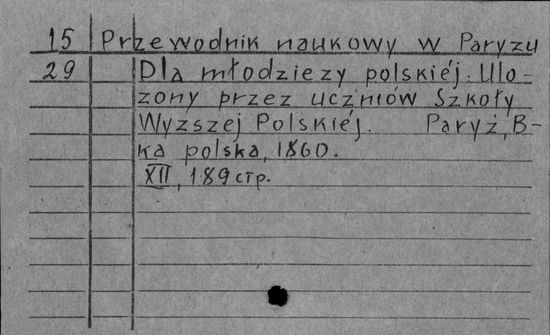 15 Przewodnik naukowy w Paryzu
29 Dla młodziezy polskiéj. Ulo-
zony przez uczniów Szkoły
Wyzszej Polskiéj. Paryż, B-
ka polska, 1860.
XII, 189 стр.